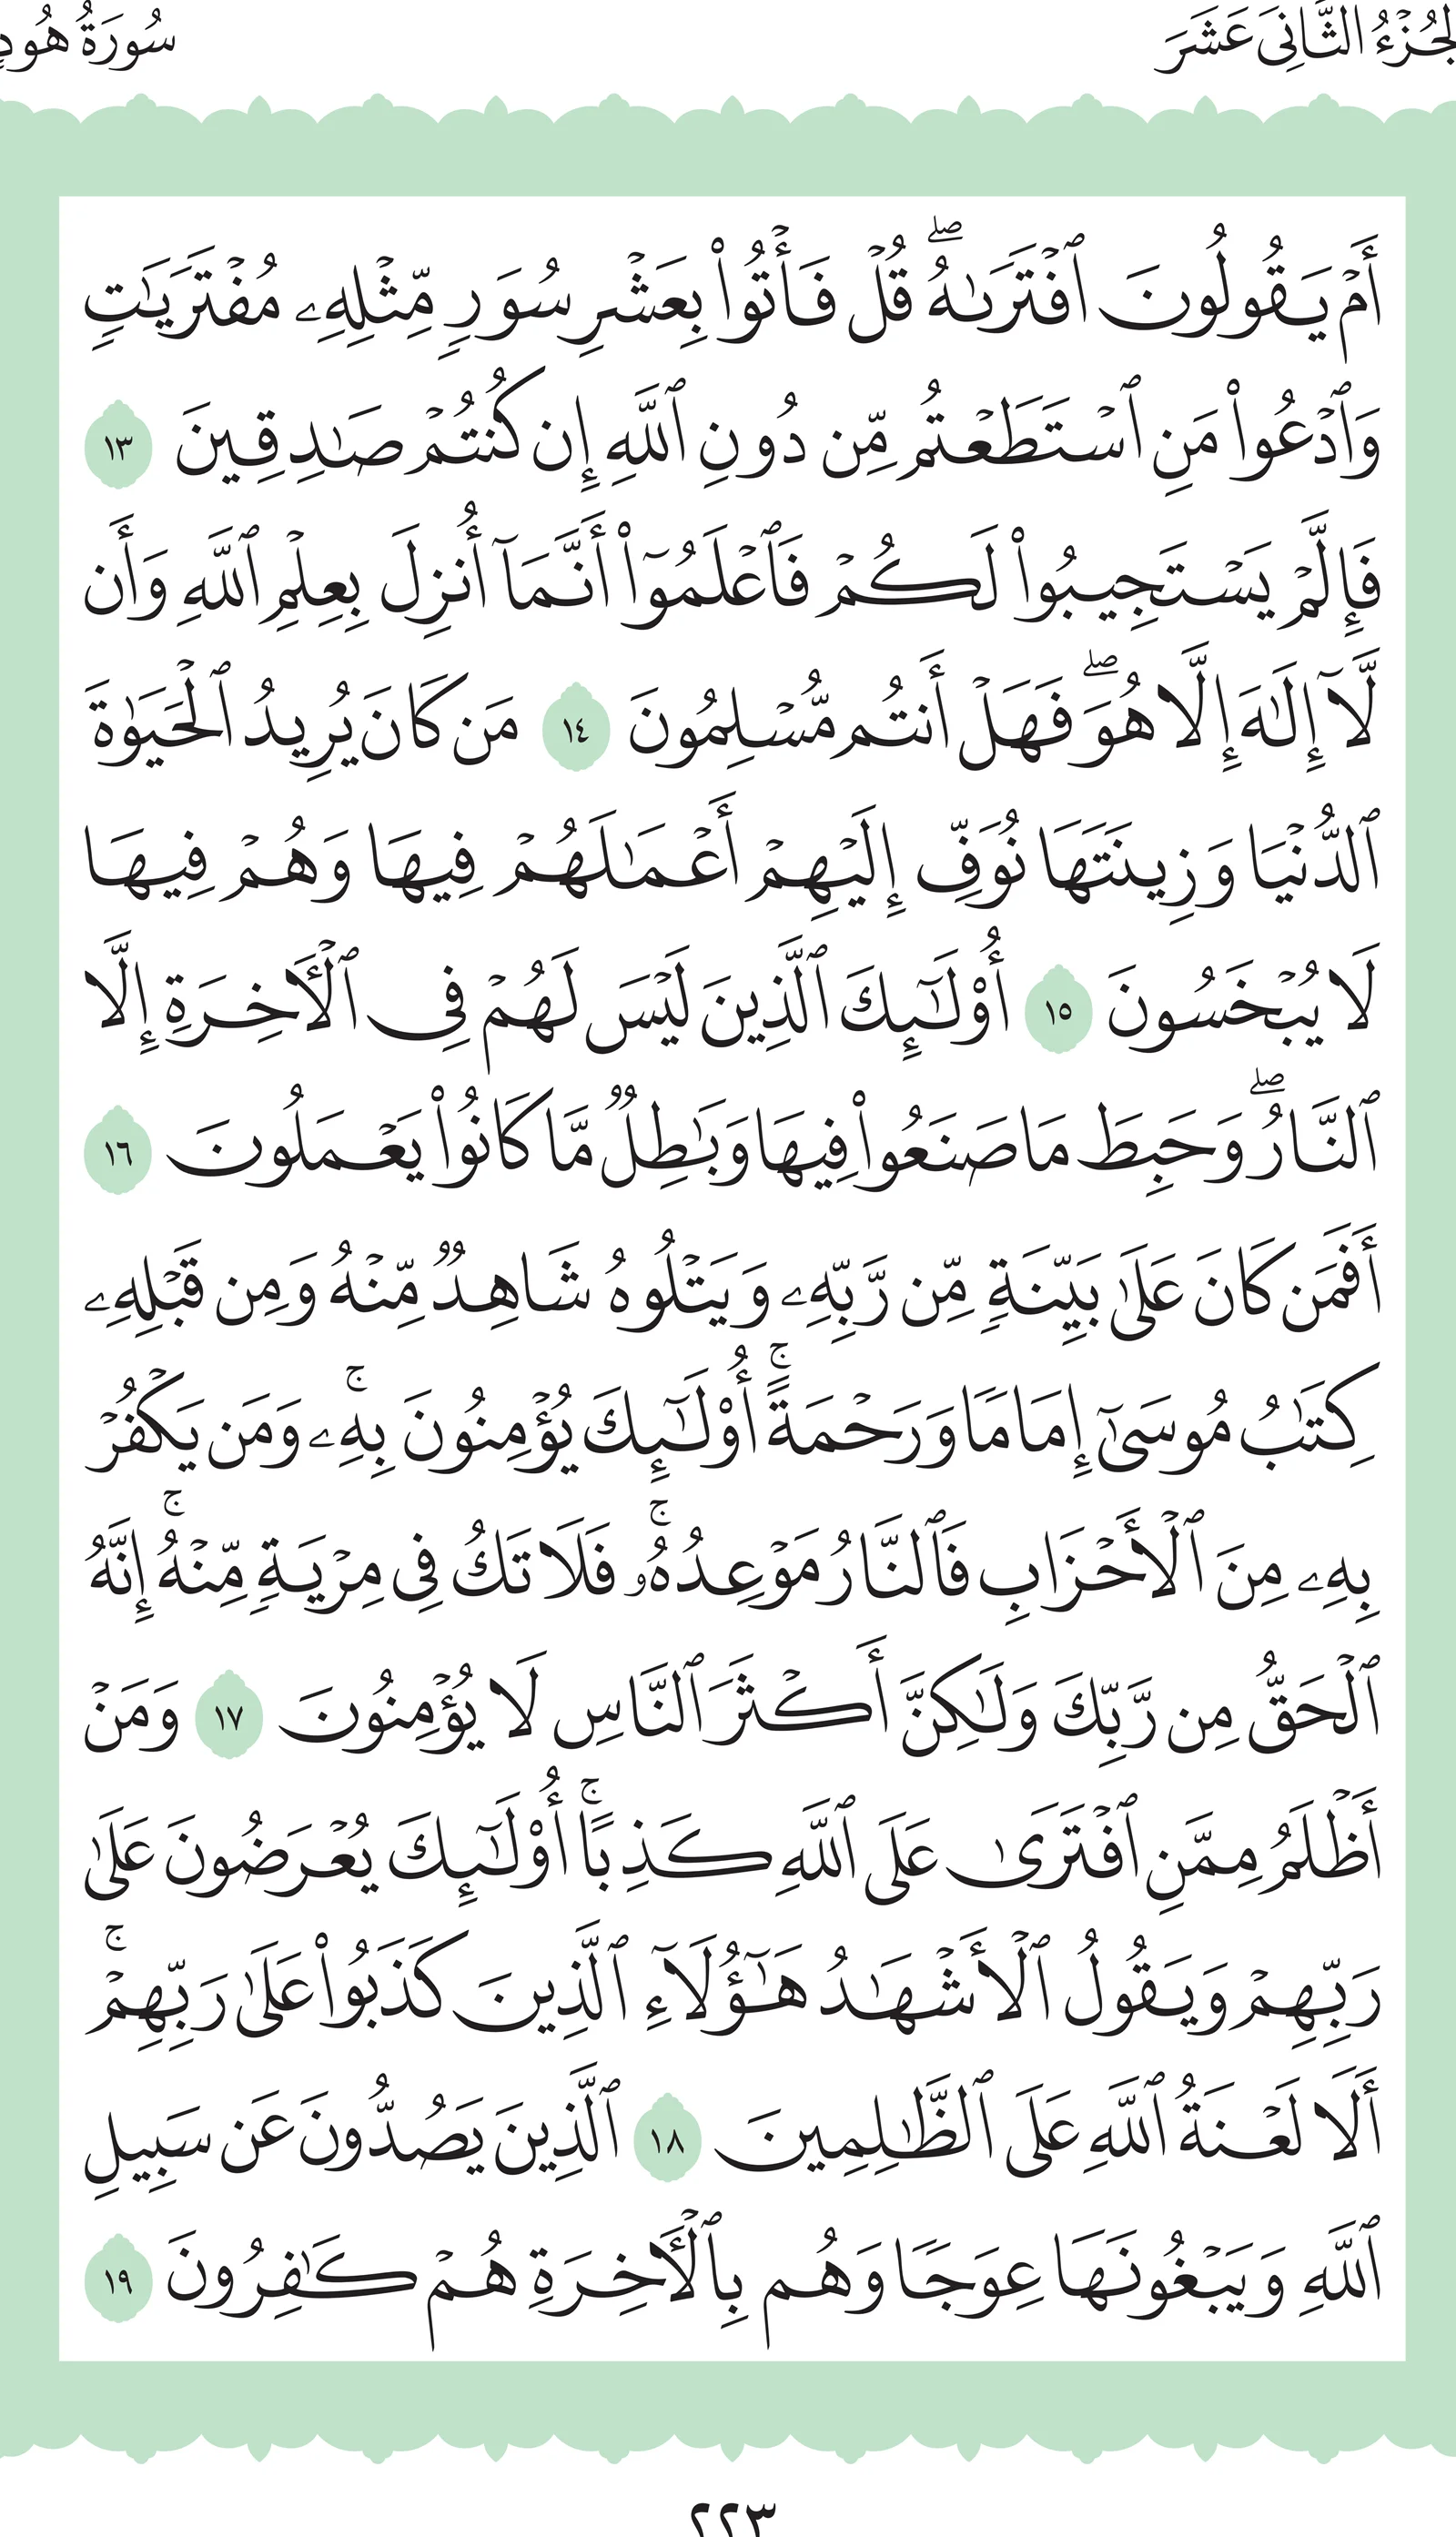 الجُزْءُ الثَّانِيَ عَشَرَ
سُورَةُ هُودٍ
أَمۡ يَقُولُونَ ٱفۡتَرَىٰهُۖ قُلۡ فَأۡتُواْ بِعَشۡرِ سُوَرٖ مِّثۡلِهِۦ مُفۡتَرَيَٰتٖ
وَٱدۡعُواْ مَنِ ٱسۡتَطَعۡتُم مِّن دُونِ ٱللَّهِ إِن كُنتُمۡ صَٰدِقِينَ ١٣
فَإِلَّمۡ يَسۡتَجِيبُواْ لَكُمۡ فَٱعۡلَمُوٓاْ أَنَّمَآ أُنزِلَ بِعِلۡمِ ٱللَّهِ وَأَن
لَّآ إِلَٰهَ إِلَّا هُوَۖ فَهَلۡ أَنتُم مُّسۡلِمُونَ ١٤ مَن كَانَ يُرِيدُ ٱلۡحَيَوٰةَ
ٱلدُّنۡيَا وَزِينَتَهَا نُوَفِّ إِلَيۡهِمۡ أَعۡمَٰلَهُمۡ فِيهَا وَهُمۡ فِيهَا
لَا يُبۡخَسُونَ ١٥ أُوْلَٰٓئِكَ ٱلَّذِينَ لَيۡسَ لَهُمۡ فِي ٱلۡأٓخِرَةِ إِلَّا
ٱلنَّارُۖ وَحَبِطَ مَا صَنَعُواْ فِيهَا وَبَٰطِلٞ مَّا كَانُواْ يَعۡمَلُونَ ١٦
أَفَمَن كَانَ عَلَىٰ بَيِّنَةٖ مِّن رَّبِّهِۦ وَيَتۡلُوهُ شَاهِدٞ مِّنۡهُ وَمِن قَبۡلِهِۦ
كِتَٰبُ مُوسَىٰٓ إِمَامٗا وَرَحۡمَةًۚ أُوْلَٰٓئِكَ يُؤۡمِنُونَ بِهِۦۚ وَمَن يَكۡفُرۡ
بِهِۦ مِنَ ٱلۡأَحۡزَابِ فَٱلنَّارُ مَوۡعِدُهُۥۚ فَلَا تَكُ فِي مِرۡيَةٖ مِّنۡهُۚ إِنَّهُ
ٱلۡحَقُّ مِن رَّبِّكَ وَلَٰكِنَّ أَكۡثَرَ ٱلنَّاسِ لَا يُؤۡمِنُونَ ١٧ وَمَنۡ
أَظۡلَمُ مِمَّنِ ٱفۡتَرَىٰ عَلَى ٱللَّهِ كَذِبًاۚ أُوْلَٰٓئِكَ يُعۡرَضُونَ عَلَىٰ
رَبِّهِمۡ وَيَقُولُ ٱلۡأَشۡهَٰدُ هَٰٓؤُلَآءِ ٱلَّذِينَ كَذَبُواْ عَلَىٰ رَبِّهِمۡۚ
أَلَا لَعۡنَةُ ٱللَّهِ عَلَى ٱلظَّٰلِمِينَ ١٨ ٱلَّذِينَ يَصُدُّونَ عَن سَبِيلِ
ٱللَّهِ وَيَبۡغُونَهَا عِوَجٗا وَهُم بِٱلۡأٓخِرَةِ هُمۡ كَٰفِرُونَ ١٩
٢٢٣